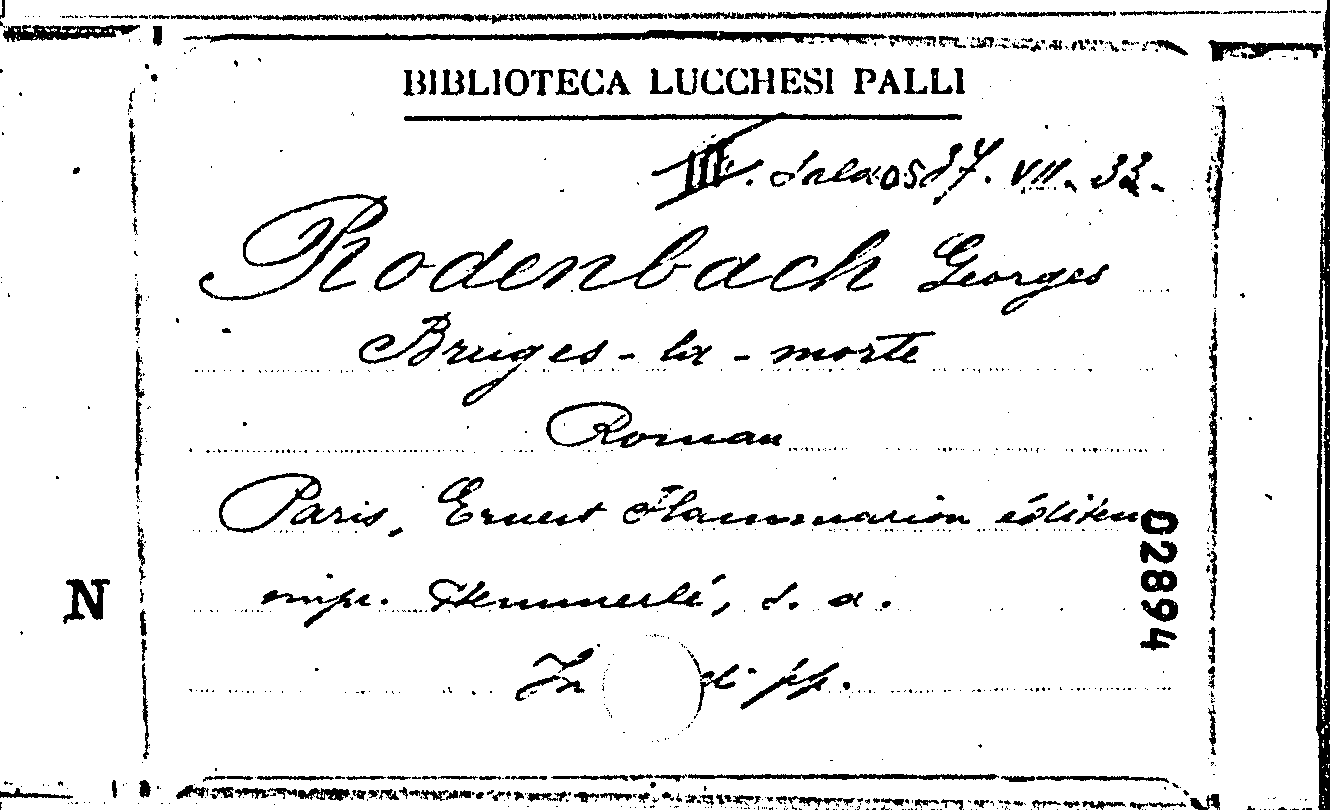 BIBLIOTECA LUCCHESI PALLI
III. Sala 05 37. VII. 33.
Rodenbach Georges
Bruges-la-morte
Roman
Paris, Ernest Flammarion éditeur
imp. Hemmerlé, s. a.
In di pp.
N
02894